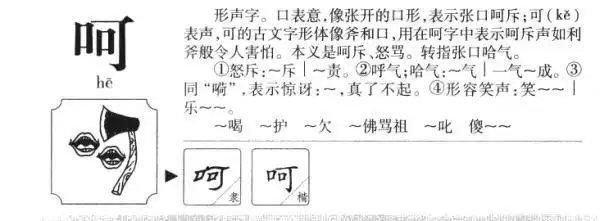 呵
hē
形声字。口表意,像张开的口形,表示张口呵斥;可(kě)
表声,可的古文字形体像斧和口,用在呵字中表示呵斥声如利
斧般令人害怕。本义是呵斥、怒骂。转指张口哈气。
①怒斥:~斥|~责。②呼气;哈气:~气|一气~成。③
同“嗬”,表示惊讶:~,真了不起。④形容笑声:笑~~|
乐~~。
~喝 ~护 ~欠 ~佛骂祖 ~叱 傻~~
呵 隶 呵 楷